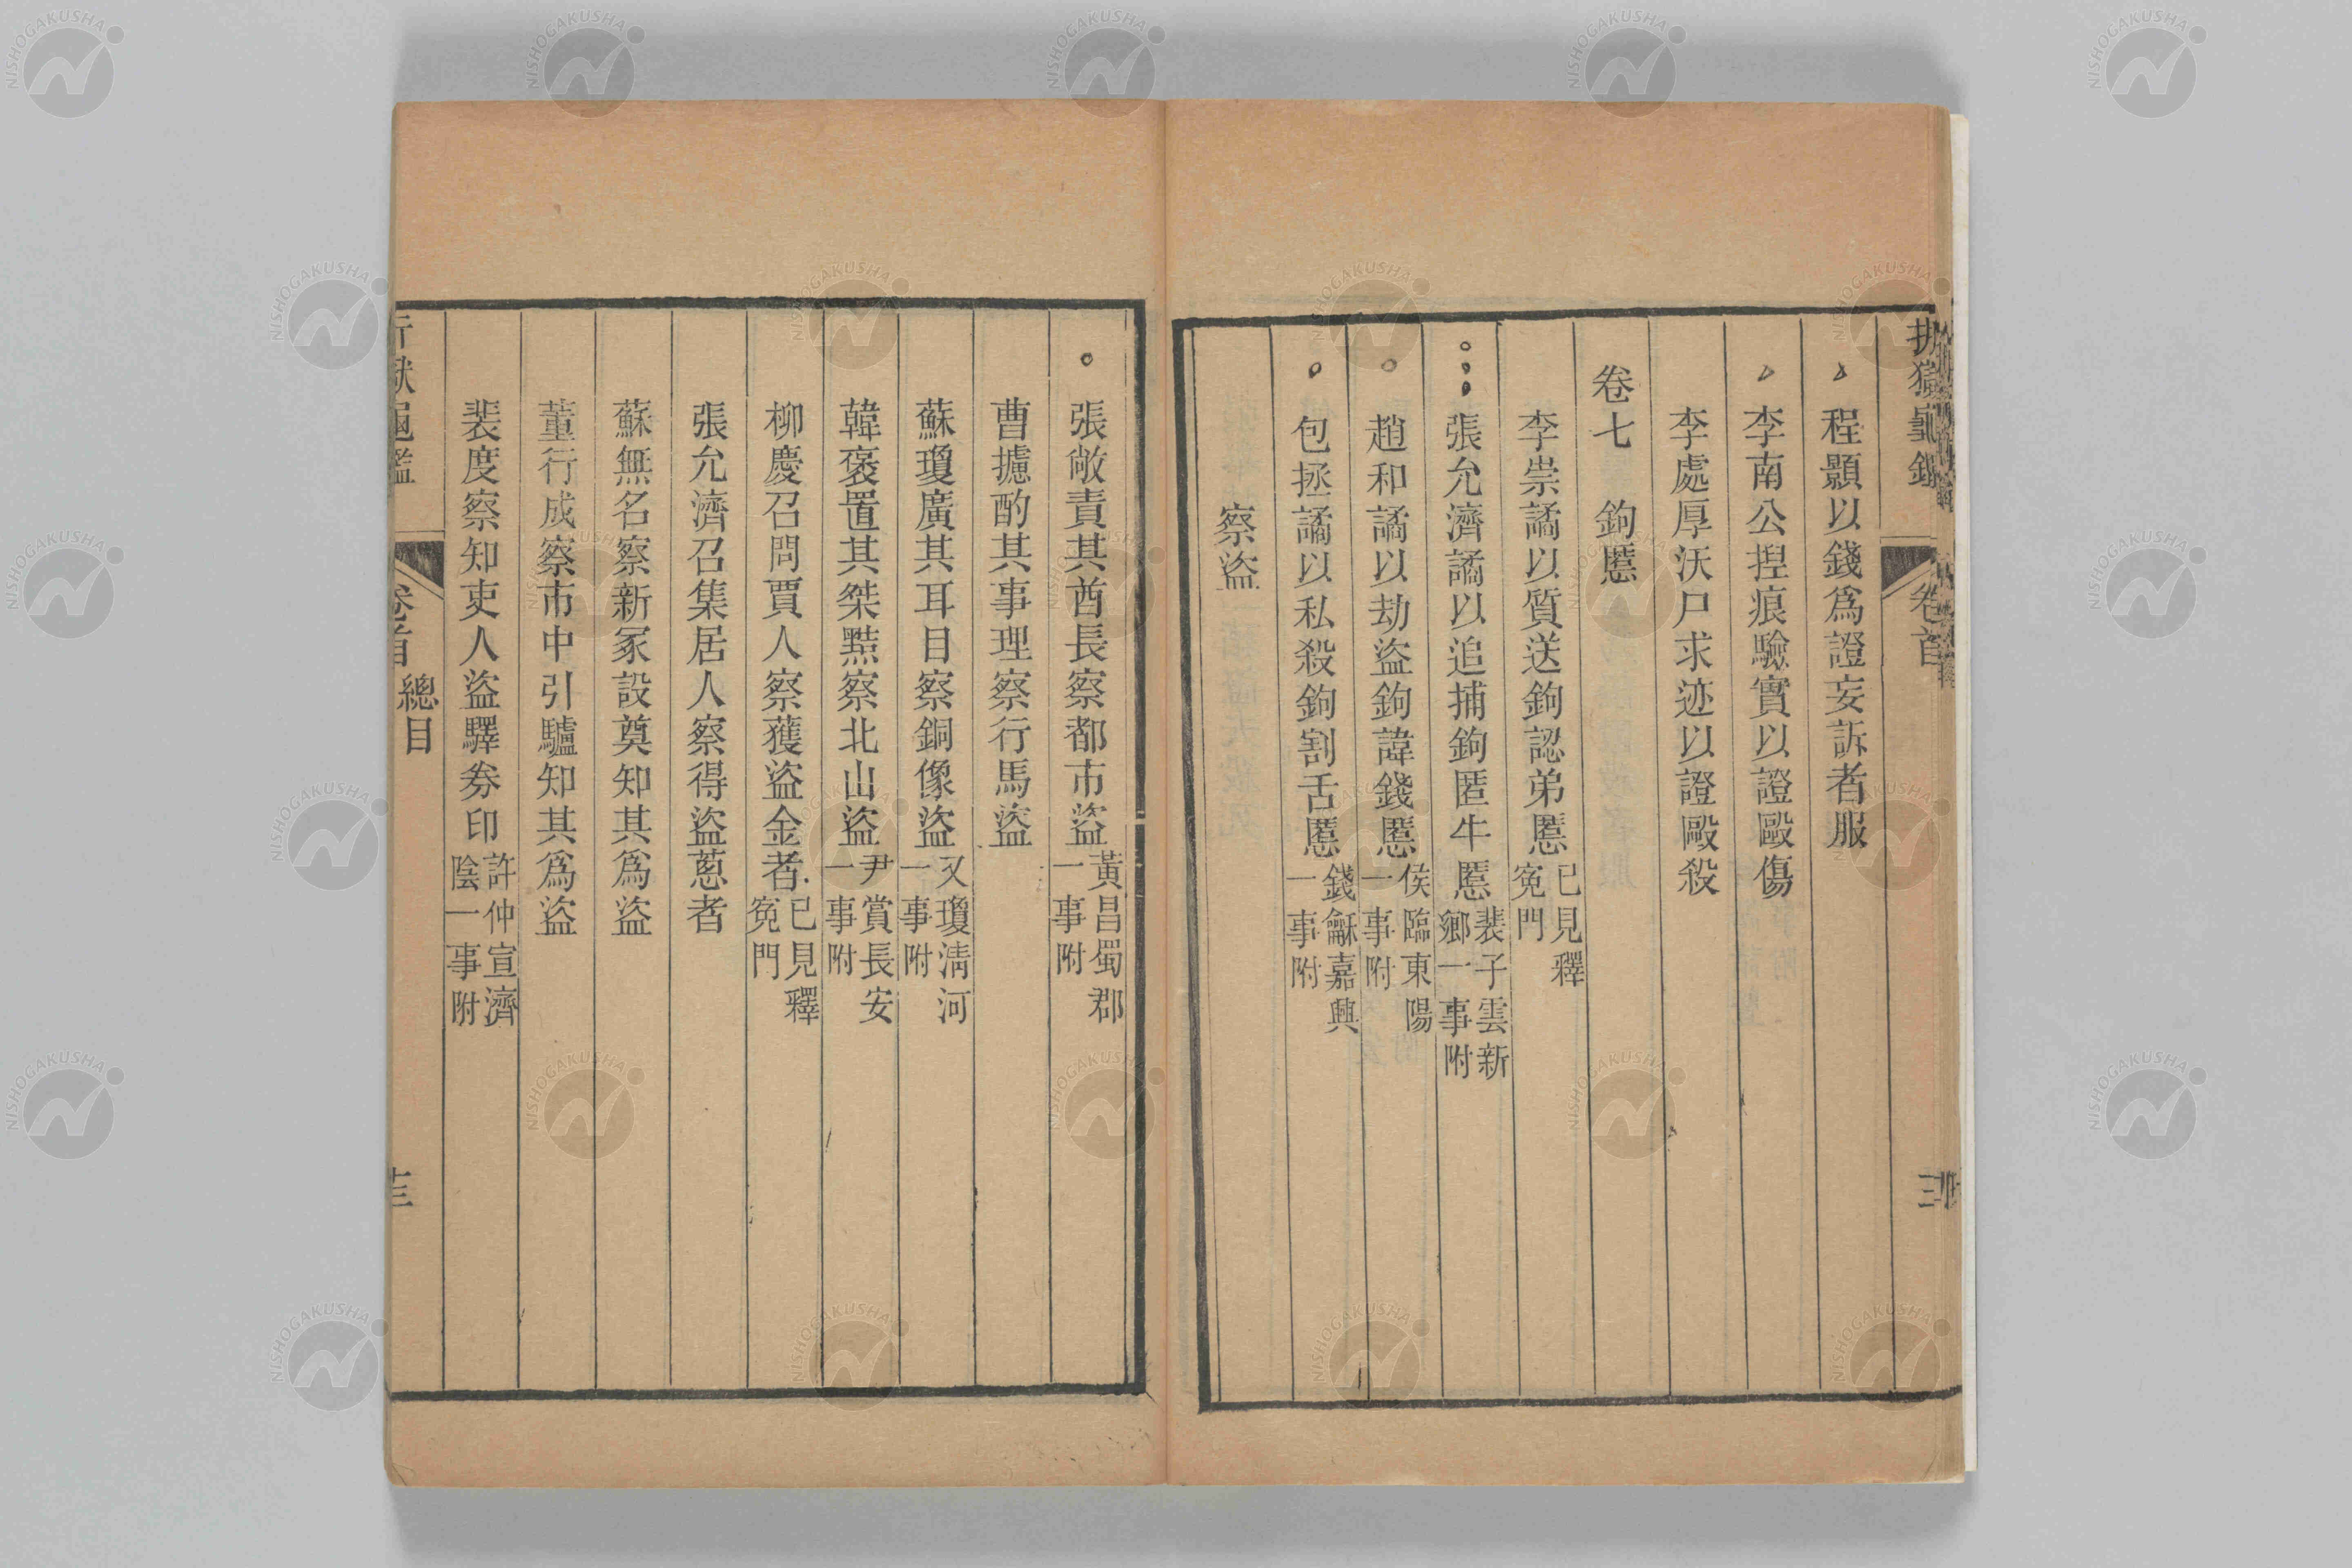 折獄龜鑑 卷首
程顥以錢爲證妄訴者服
李南公揑痕驗實以證毆傷
李處厚沃尸求迹以證毆殺
卷七 鉤慝
李崇譎以質送鉤認弟慝已見釋冤門
張允濟譎以追捕鉤匿牛慝裴子雲新鄉一事附
趙和譎以劫盜鉤諱錢慝侯臨東陽一事附
包拯譎以私殺鉤割舌慝錢龢嘉興一事附
察盜
張敞責其酋長察都市盜黃昌蜀郡一事附
曹攄酌其事理察行馬盜
蘇瓊廣其耳目察銅像盜又瓊淸河一事附
韓褒置其桀黠察北山盜尹賞長安一事附
柳慶召問賈人察獲盜金者已見釋冤門
張允濟召集居人察得盜蔥者
蘇無名察新冢設奠知其爲盜
董行成察市中引驢知其爲盜
裴度察知吏人盜驛券印許仲宣濟陰一事附
折獄龜鑑 卷首 總目
NISHOGAKUSHA